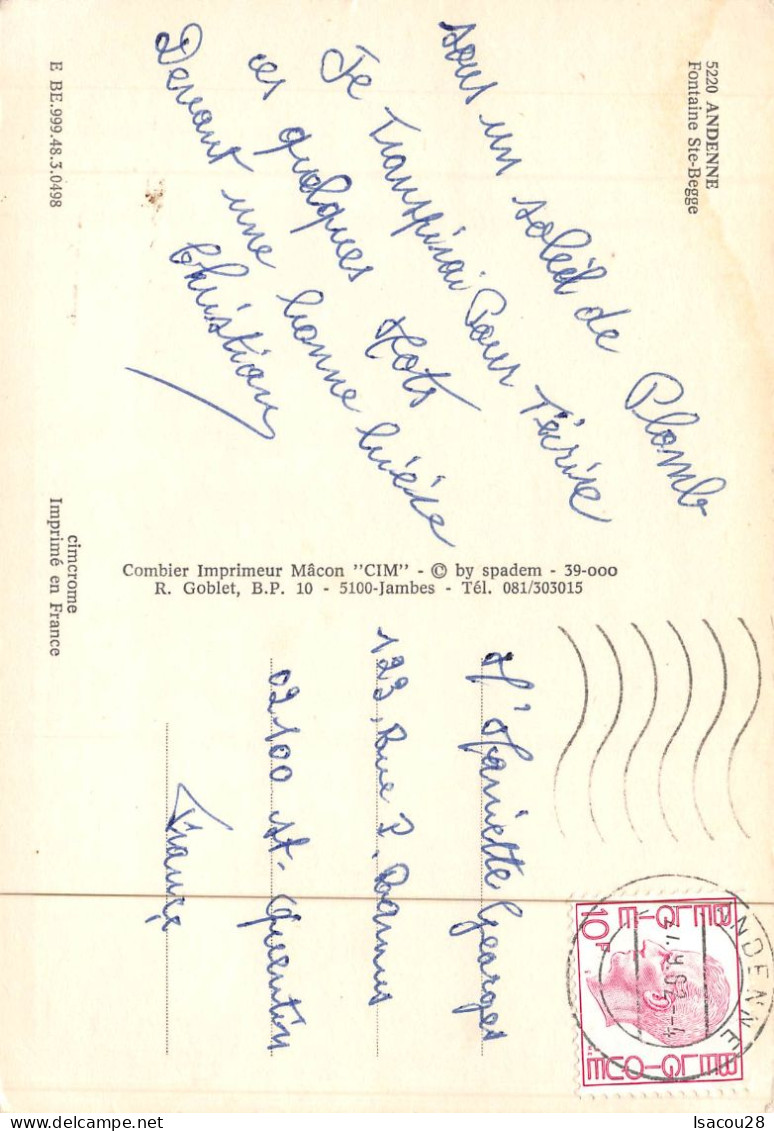 5220 ANDENNE
Fontaine Ste-Begge
sous un soleil de Plomb
Je Transpirai Pour T'écrire
ces quelques Mots
Devant une bonne bière
Christian
E BE.999.48.3.0498
cimcrome
Imprimé en France
Combier Imprimeur Mâcon "CIM" - © by spadem - 39-000
R. Goblet, B.P. 10 - 5100-Jambes - Tél. 081/303015
Georges
123, Rue P.
02100 St-Quentin
France
BELGIE
10F
BELGIQUE
ANDENNE
Isacou28